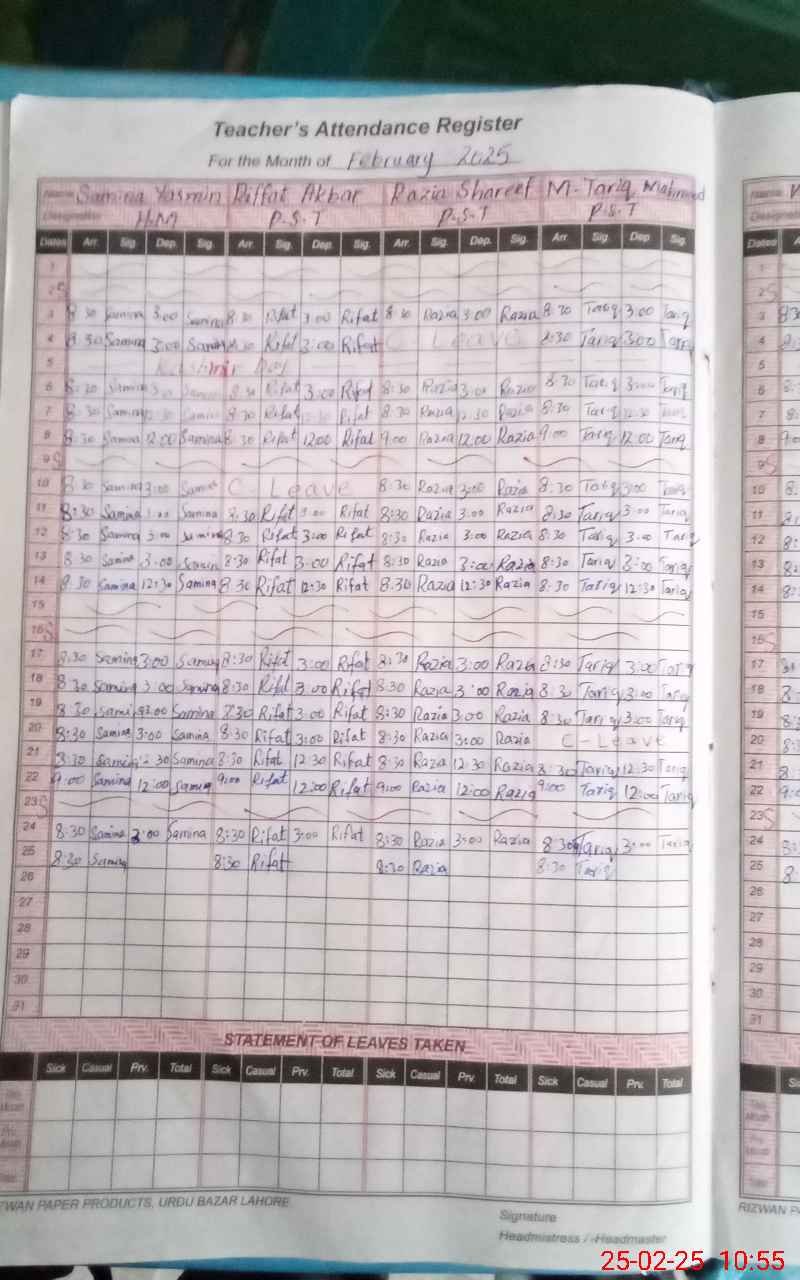 Teacher's Attendance Register
For the Month of February 2025
Name Samina Yasmin Riffat Akbar Razia Shareef M-Tariq Mahmood
Designation H.M P.S.T P.S.T P.S.T
Dates Arr. Sig. Dep. Sig. Arr. Sig. Dep. Sig. Arr. Sig. Dep. Sig. Arr. Sig. Dep. Sig.
1
2 S
3 8 30 Samina 3:00 Samina 8:30 Rifat 3:00 Rifat 8:30 Razia 3:00 Razia 8:30 Tariq 3:00 Tariq
4 8:30 Samina 3:00 Samina 8:30 Rifat 3:00 Rifat C Leave 8:30 Tariq 3:00 Tariq
5 Kashmir Day
6 8:30 Samina 3:0 Samina 8:30 Rifat 3:00 Rifat 8:30 Razia 3:00 Razia 8:30 Tariq 3:00 Tariq
7 8:30 Samina 8:30 Rifat Rifat 8:30 Razia 12:30 Razia 8:30 Tariq 12:30 Tariq
8 8:30 Samina 12:00 Samina 8:30 Rifat 12:00 Rifat 9:00 Razia 12:00 Razia 9:00 Tariq 12:00 Tariq
9 S
10 8:30 Samina 3:00 Samina C - Leave 8:30 Razia 3:00 Razia 8:30 Tariq 3:00 Tariq
11 8:30 Samina Samina 8:30 Rifat 3:00 Rifat 8:30 Razia 3:00 Razia 8:30 Tariq 3:00 Tariq
12 8:30 Samina 3:00 Samina 8:30 Rifat 3:00 Rifat 8:30 Razia 3:00 Razia 8:30 Tariq 3:00 Tariq
13 8:30 Samina 3:00 Samina 8:30 Rifat 3:00 Rifat 8:30 Razia 3:00 Razia 8:30 Tariq 3:00 Tariq
14 8:30 Samina 12:30 Samina 8:30 Rifat 12:30 Rifat 8:30 Razia 12:30 Razia 8:30 Tariq 12:30 Tariq
15
16 S
17 8:30 Samina 3:00 Samina 8:30 Rifat 3:00 Rifat 8:30 Razia 3:00 Razia 8:30 Tariq 3:00 Tariq
18 8:30 Samina 3:00 Samina 8:30 Rifat 3:00 Rifat 8:30 Razia 3:00 Razia 8:30 Tariq 3:00 Tariq
19 8:30 Samina 3:00 Samina 8:30 Rifat 3:00 Rifat 8:30 Razia 3:00 Razia 8:30 Tariq 3:00 Tariq
20 8:30 Samina 3:00 Samina 8:30 Rifat 3:00 Rifat 8:30 Razia 3:00 Razia C-Leave
21 8:30 Samina 12:30 Samina 8:30 Rifat 12:30 Rifat 8:30 Razia 12:30 Razia 8:30 Tariq 12:30 Tariq
22 9:00 Samina 12:00 Samina 9:00 Rifat 12:00 Rifat 9:00 Razia 12:00 Razia 9:00 Tariq 12:00 Tariq
23 S
24 8:30 Samina 3:00 Samina 8:30 Rifat 3:00 Rifat 8:30 Razia 3:00 Razia 8:30 Tariq 3:00 Tariq
25 8:30 Samina 8:30 Rifat 8:30 Razia 8:30 Tariq
26
27
28
29
30
31
STATEMENT OF LEAVES TAKEN
Sick Casual Prv. Total Sick Casual Prv. Total Sick Casual Prv. Total Sick Casual Prv. Total
This Month
Prv. Month
Total
ZWAN PAPER PRODUCTS, URDU BAZAR LAHORE
Signature
Headmistress / Headmaster
Name
Designation
Dates
1
2 S
3
4
5
6
7
8
9 S
10
11
12
13
14
15
16 S
17
18
19
20
21
22
23 S
24
25
26
27
28
29
30
31
This Month
Prv. Month
Total
RIZWAN PA
25-02-25 10:55